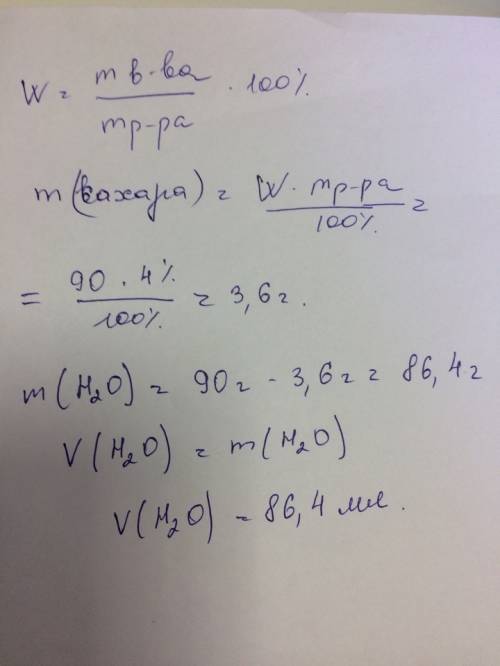 W = m в-ва / m р-ра · 100%
m(сахара) = W · m р-ра / 100% =
= 90 · 4% / 100% = 3,6 г.
m(H₂O) = 90 г - 3,6 г = 86,4 г
V(H₂O) = m(H₂O)
V(H₂O) = 86,4 мл.